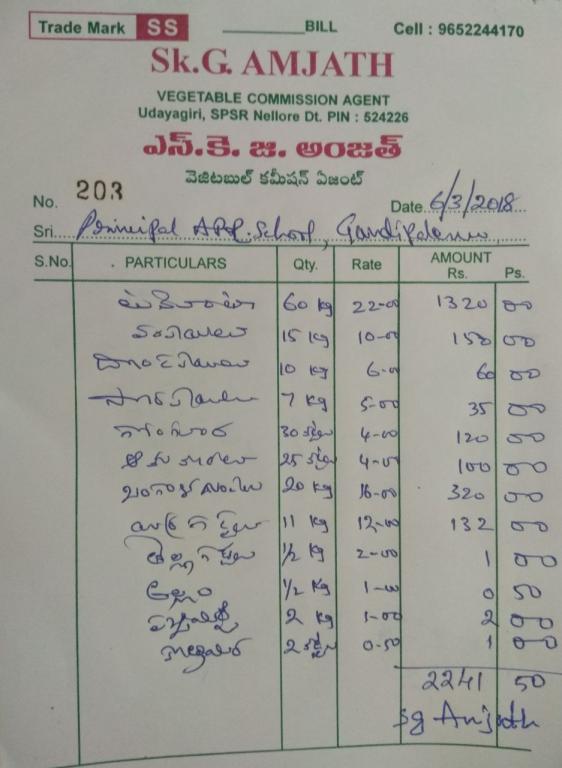 Trade Mark SS BILL Cell : 9652244170
Sk.G. AMJATH
VEGETABLE COMMISSION AGENT
Udayagiri, SPSR Nellore Dt. PIN : 524226
ఎస్.కె. జి. అంజత్
వెజిటబుల్ కమీషన్ ఏజంట్
No. 203 Date 6/3/2018
Sri Principal School, Gandipalem
S.No. PARTICULARS Qty. Rate AMOUNT
Rs. Ps.
60 kg 22-00 1320 00
వంకాయలు 15 kg 10-00 150 00
10 kg 6-00 60 00
7 kg 5-00 35 00
గోంగూర 30 కట్టలు 4-00 120 00
ఆకుకూరలు 25 కట్టలు 4-00 100 00
20 kg 16-00 320 00
11 kg 12-00 132 00
1/2 kg 2-00 1 00
అల్లం 1/2 kg 1-00 0 50
2 kg 1-00 2 00
2 కట్టలు 0-50 1 00
2241 50